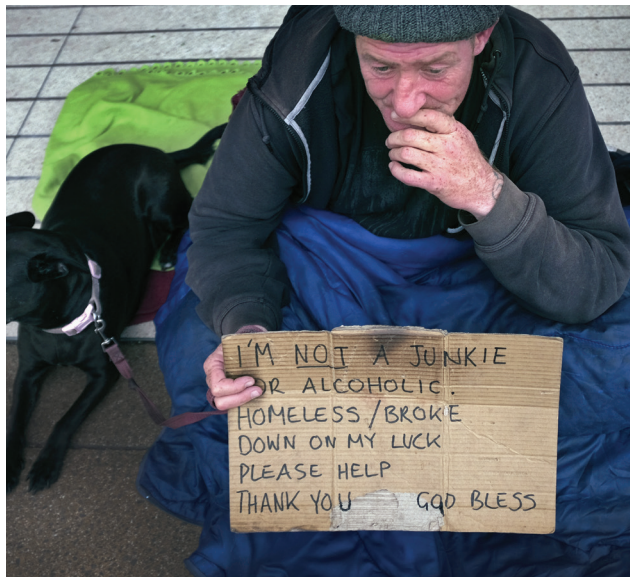 I'M NOT A JUNKIE
OR ALCOHOLIC
HOMELESS/BROKE
DOWN ON MY LUCK
PLEASE HELP
THANK YOU GOD BLESS